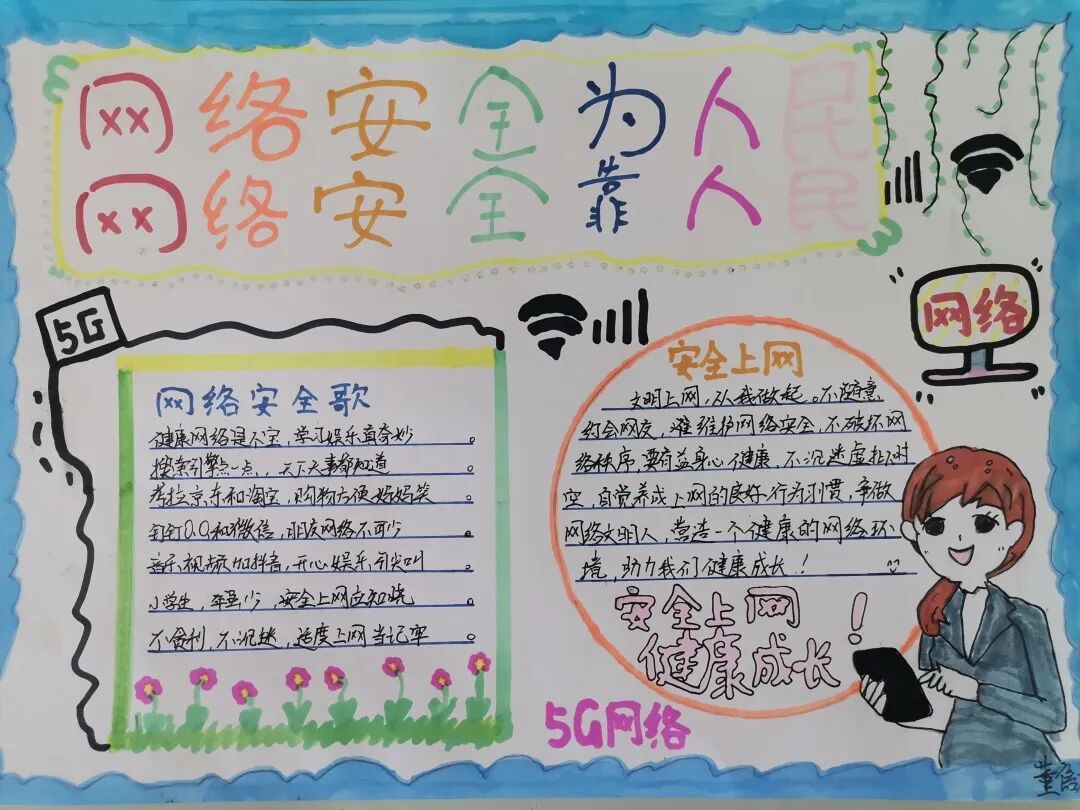 网络安全为人民
网络安全靠人民
5G
网络
网络安全歌
健康网络是个宝,学习娱乐真奇妙。
搜索引擎点一点,天下大事都知道。
考拉京东和淘宝,购物方便妈妈笑。
钉钉QQ和微信,朋友网络不可少。
音乐视频加抖音,开心娱乐
小学生,年虽少,安全上网应知晓。
不贪利,不沉迷,适度上网当记牢。
安全上网
文明上网,从我做起。不随意
约会网友,维护网络安全,不破坏网
络秩序,要有益身心健康,不沉迷虚拟时
空,自觉养成上网的良好行为习惯,争做
网络文明人,营造一个健康的网络环
境,助力我们健康成长!
安全上网
健康成长!
5G网络
董